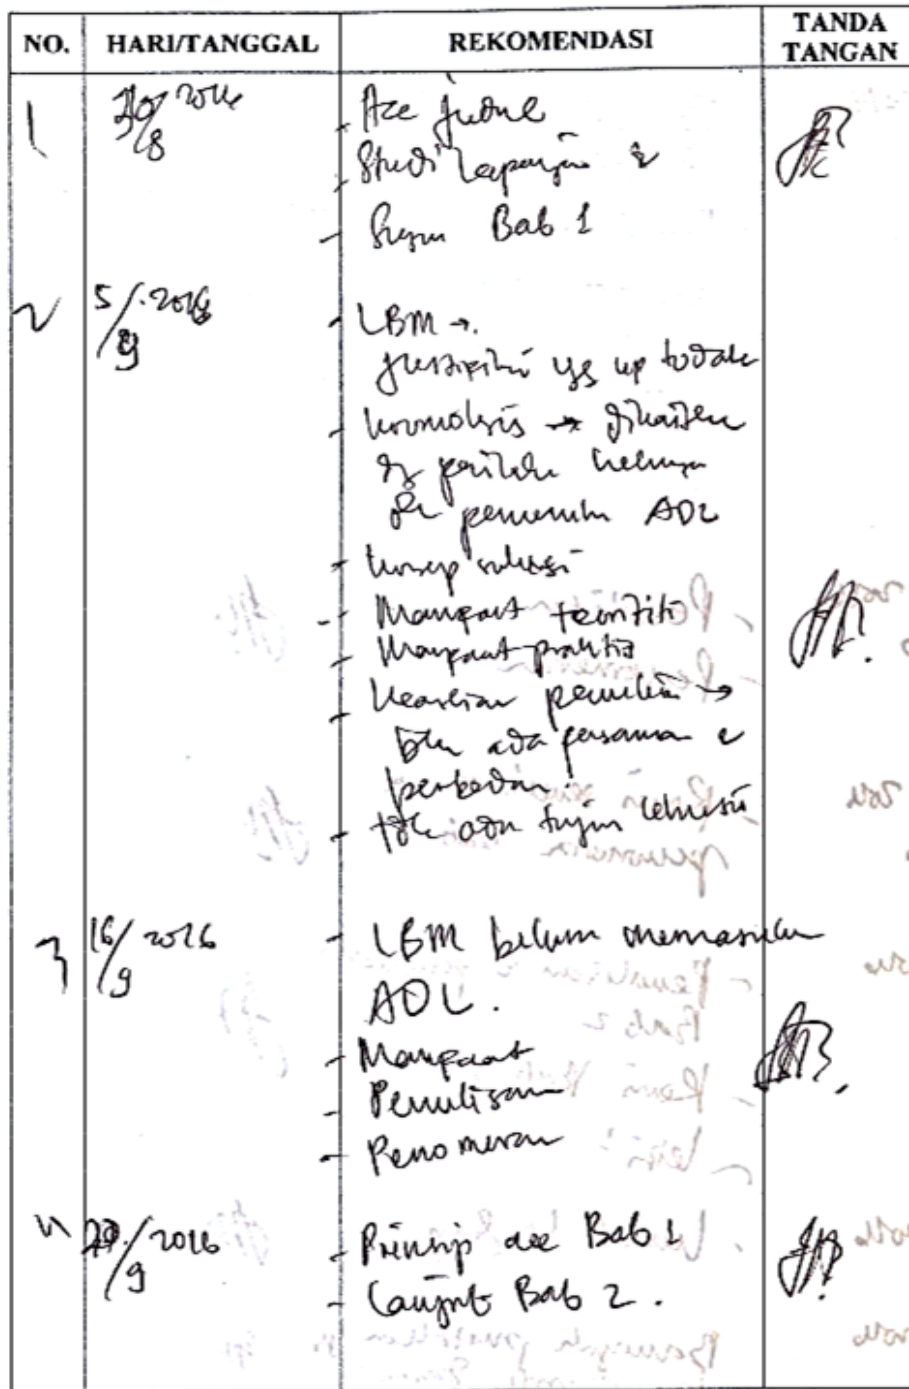 NO. HARI/TANGGAL REKOMENDASI TANDA TANGAN
1 30/8 2016 - Acc judul
- Studi lapangan &
- Susun Bab 1
2 5/9 2016 - LBM →
yg up to date
- → dikaitkan
dg perilaku
pemenuhan ADL
- konsep
- Manfaat teoritis
- Manfaat praktis
- Keaslian penelitian →
blm ada persamaan &
perbedaan.
- tdk ada tujuan khusus
3 16/9 2016 - LBM belum memasukan
ADL.
- Manfaat
- Penulisan
- Penomeran
4 /9 2016 - Prinsip acc Bab 1
- Lanjut Bab 2.